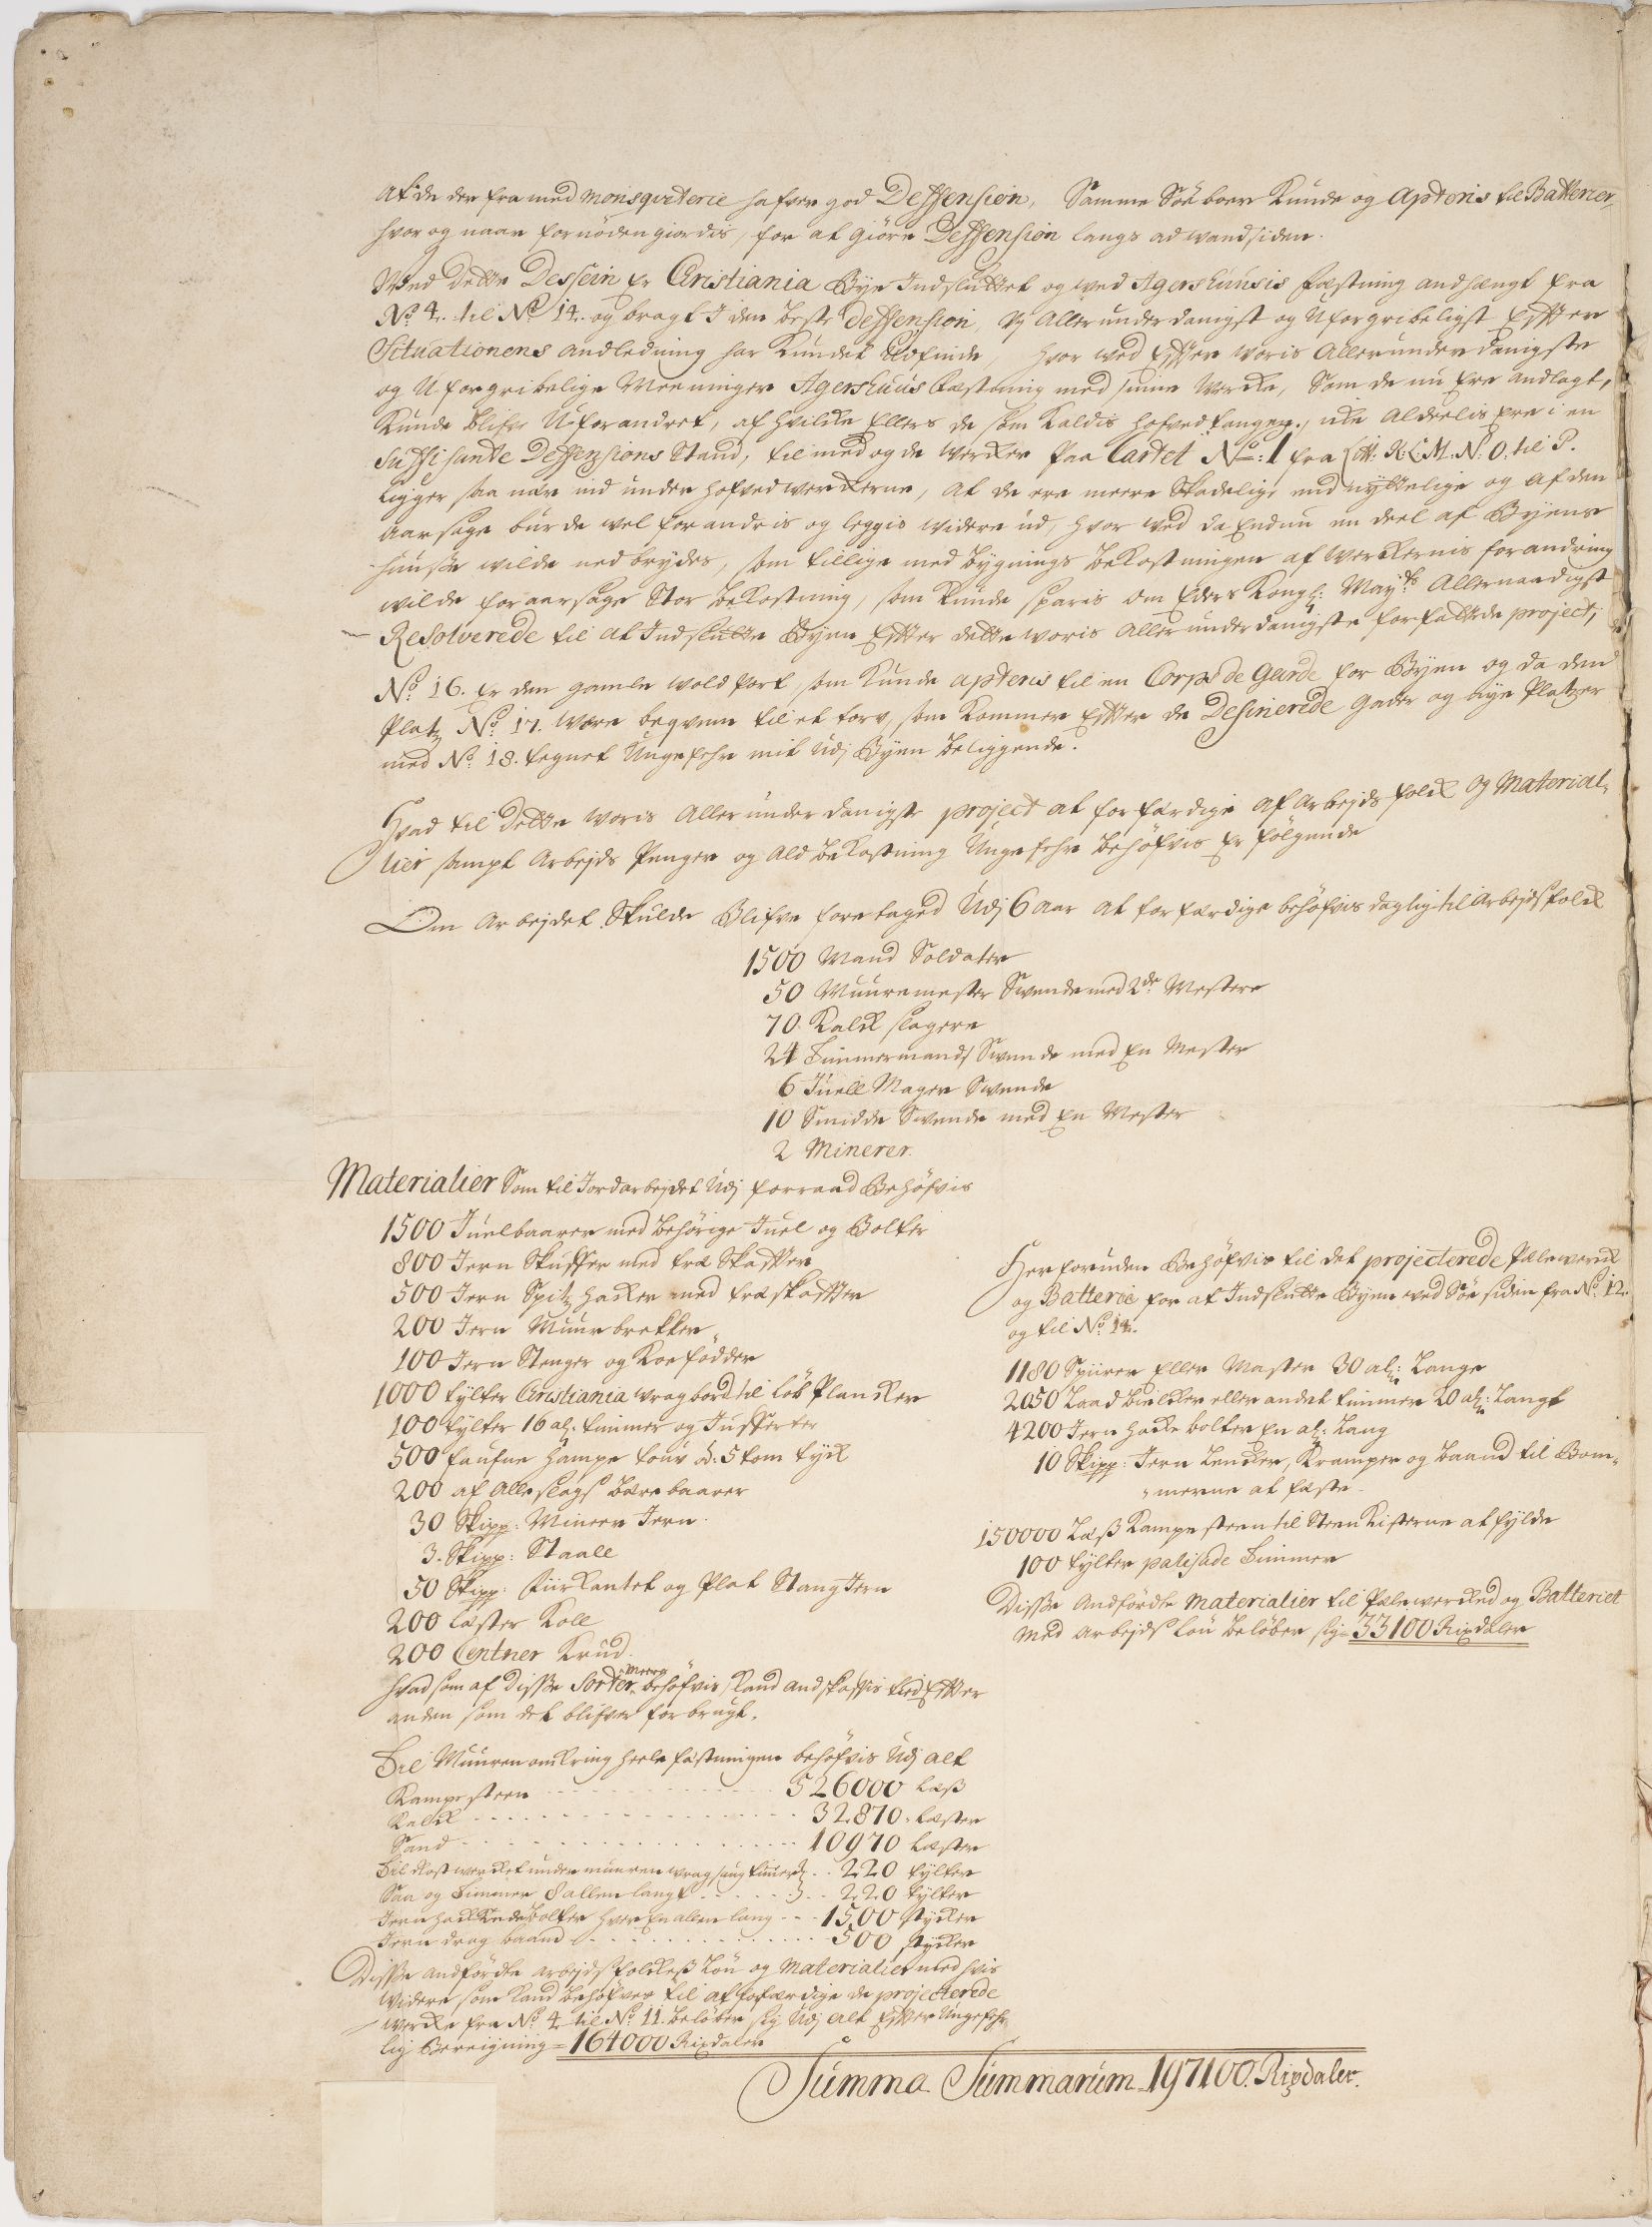 at de der fra med Monsqveterie hafver god Deffension, Samme Söe boer Kunde og Apteris til Batterier,
hvor og naar fornöden giordis, for at giöre Deffension langs ad wandsiden.
Med dette Dessein er Christiania Bye Indsluttet og ved Agershuusis fæstning andhængt fra
No. 4. til No. 14. og bragt I den beste deffension, Vj Allerunderdanigst og Uforgribeligst Effter
Situationens andledning har Kundet udfinde, hvor ved Effter woris Allerunderdanigste
og Uforgribelige Meeninger Agershuus fæstning med sinne Wercke, Som de nu ere andlagt,
Kunde blifve Uforandret, af hvilcke Ellers de som Kaldis hofved tanger, icke Aldeelis ere i en
suffisante Deffensions Stand, til med og de Wercker paa Cartet No: 1 fra Litt: K: L: M: N: O: til P.
ligger saa nær ind under hofvedwerckerne, at de ere meere Skadelige end nyttelige og af den
aarsage burde vel forandris og leggis widere ud, hvor ved da Endnu en deel af Byens
huusse wilde nedbrydes, som tillige med bygnings bekostningen af Werckernis forandring
wilde foraarsage Stor bekostning, som Kunde sparis om Eders Kongl: Mayts Allernaadigst
Resolverede til at Indslutte Byen Effter dette woris Allerunderdanigste forfattede project,
No. 16. Er den gamle Wold Port, som Kunde apteris til en Corps de Garde for Byen og da den
Platz No. 17. være beqvem til et torv, som kommer Effter de Desinerede gader og nye Platzer
med No. 18. tegnet Ungefehr mit udj Byen beliggende.
Hvad til dette woris Allerunderdanigste project at forfærdige af Arbejds folck og Material,
lier sampt Arbejds Penger og Ald bekostning Ungefehr behöfvis Er fölgende
Om Arbejdet Skulde Blifve foretaged Udj 6 Aar at forfærdige behöfvis daglig til Arbejdsfolck
1500 Mand Soldater
50 Muuremester Svende med 2de Mestere
70 Kalck slagere
24 Timmermands Svende med En Mester
6 Juell Mager Svende
10 Smidde Svende med En Mester
2 Minerer.
Materialier Som til Jordarbejdet Udj forraad Behöfvis
1500 Juelbaarer med behörige Juel og Bolter
800 Jern Skuffer med træ Skaffter
500 Jern Spitz hacker med træ skaffter
200 Jern Muur brekker
100 Jern Stenger og Koefödder
1000 tylter Christiania wragbord til löb Plancker
100 tylter 16 al: timmer og Jufferter
500 faufne hampe touv à 5 tom tyck
200 af Alle slags bære baarer
30 Skipp: Mineer Jern
3. Skipp: Staall
50 Skipp: Fiirkantet og Plat Stang Jern
200 Læster Koll
200 Centner Krud.
hvad som af disse Sorter meere behöfvis, kand andskaffis tid Effter
anden som det blifver forbrugt.
Til Muuren omkring heele fæstningen behöfvis Udj alt
Kampesteen 526000 læß
Kalck 32870. læster
Sand 10970 læster
Til Rostwercket under muuren wrag saug timer 220 tylter
Saa og Timmer 8 allen langt 220 tylter
Jern hackkede bolter hver En allen lang 1500 stycker
Jern drag baand 500 stycker
Disse andförde arbejdsfolckes Lön og Materialier med hvis
widere som kand behöfves til at forfærdige de projecterede
wercke fra No. 4. til No. 11. belöber sig Udj alt Effter Ungefehr
lig Bereigning = 164000 Rixdaler
Her foruden Behöfvis til det projecterede Pælewerck
og Batterie for at Indslutte Byen ved Söe siden fra No. 12.
og til No. 14.
1180 Spiirer Eller Master 30 al: Lange
2050 Laad bielcker eller andet timmer 20 al: Langt
4200 Jern hacke bolter En al: Lang
10 Skipp: Jern Lencker, Kramper og baand til Bom,
merne at fæste
150000 Læß Kampesteen til Steen Kisterne at fylde
100 tylter palisade Timmer
Disse Andförde Materialier til Pælewercked og Batteriet
med Arbejds lön belöber sig = 33100 Rixdaler
Summa Summarum 197100. Rixdaler.